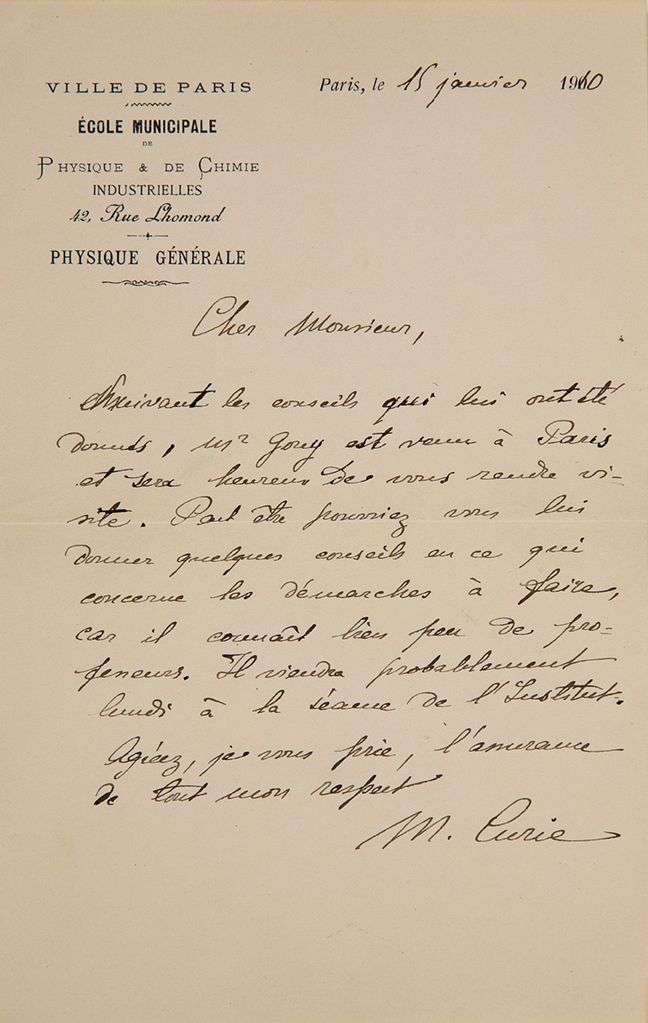 VILLE DE PARIS
ÉCOLE MUNICIPALE
DE
PHYSIQUE & DE CHIMIE
INDUSTRIELLES
42, Rue Lhomond
PHYSIQUE GÉNÉRALE
Paris, le 15 janvier 1910
Cher Monsieur,
Suivant les conseils qui lui ont été
donnés, Mr Gouy est venu à Paris
et sera heureux de vous rendre vi-
site. Peut être pourriez vous lui
donner quelques conseils en ce qui
concerne les démarches à faire,
car il connaît bien peu de pro-
fesseurs. Il viendra probablement
lundi à la séance de l'Institut.
Agréez, je vous prie, l'assurance
de tout mon respect
M. Curie